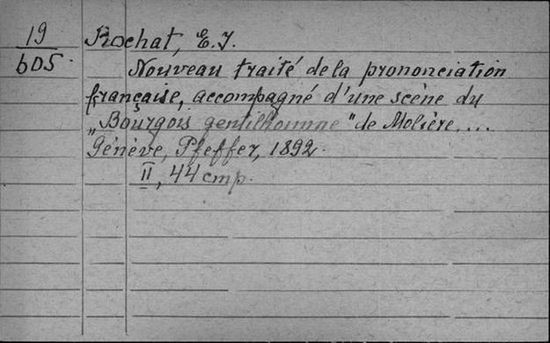 19
605.
Rochat, E. J.
Nouveau traité de la prononciation
française, accompagné d'une scène du
„Bourgois gentilhomme" de Molière....
Génève, Pfeffer, 1892.
II, 44 стр.